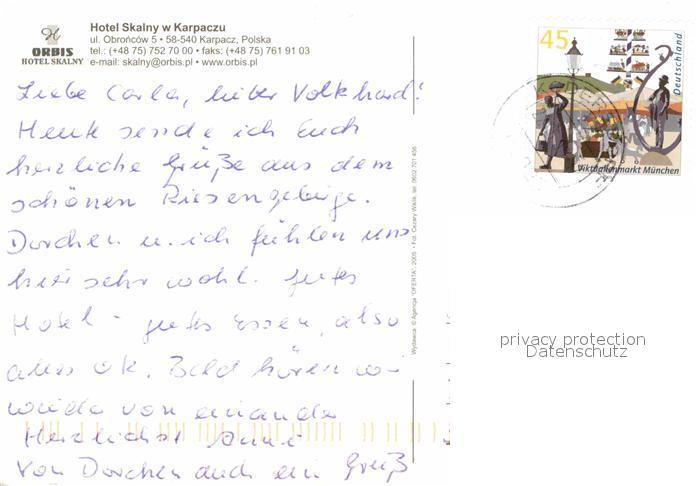 Hotel Skalny w Karpaczu
ul. Obrońców 5 • 58-540 Karpacz, Polska
tel.: (+48 75) 752 70 00 • faks: (+48 75) 761 91 03
e-mail: skalny@orbis.pl • www.orbis.pl
ORBIS
HOTEL SKALNY
Liebe Carla, lieber Volkhard!
Heute sende ich Euch
herzliche Grüße aus dem
schönen Riesengebirge.
Dorchen u. ich fühlen uns
hier sehr wohl. Gutes
Hotel - gutes Essen, also
alles ok. Bald hören wir
wieder von einander
Herzlichst Anni
Von Dorchen auch ein Gruß
Wydawca: © Agencja "OFERTA", 2005 • Fot. Cezary Wiklik, tel. 0602 701 456
45
Deutschland
Viktualienmarkt München
privacy protection
Datenschutz